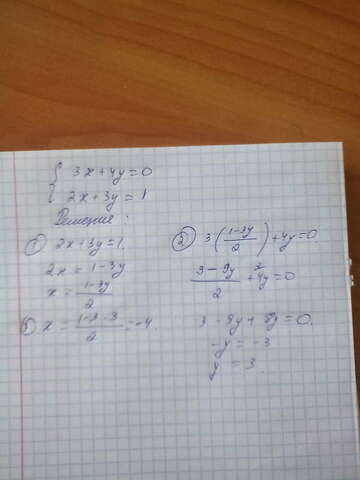 { 3x+4y=0
2x+3y=1
Решение:
① 2x+3y=1.
2x=1-3y
x=\frac{1-3y}{2}
② 3(\frac{1-3y}{2})+4y=0.
\frac{3-9y}{2}+4y^{2}=0
3-9y+8y=0.
-y=-3
y=3.
③ x=\frac{1-3·3}{2}=-4.